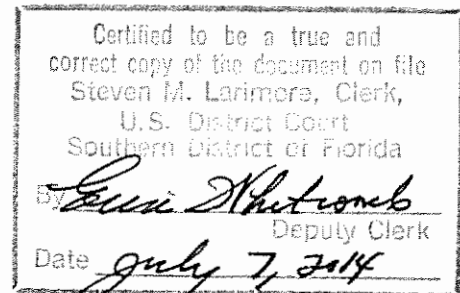 Certified to be a true and
correct copy of the document on file
Steven M. Larimore, Clerk,
U.S. District Court
Southern District of Florida
By
Deputy Clerk
Date July 7, 2014